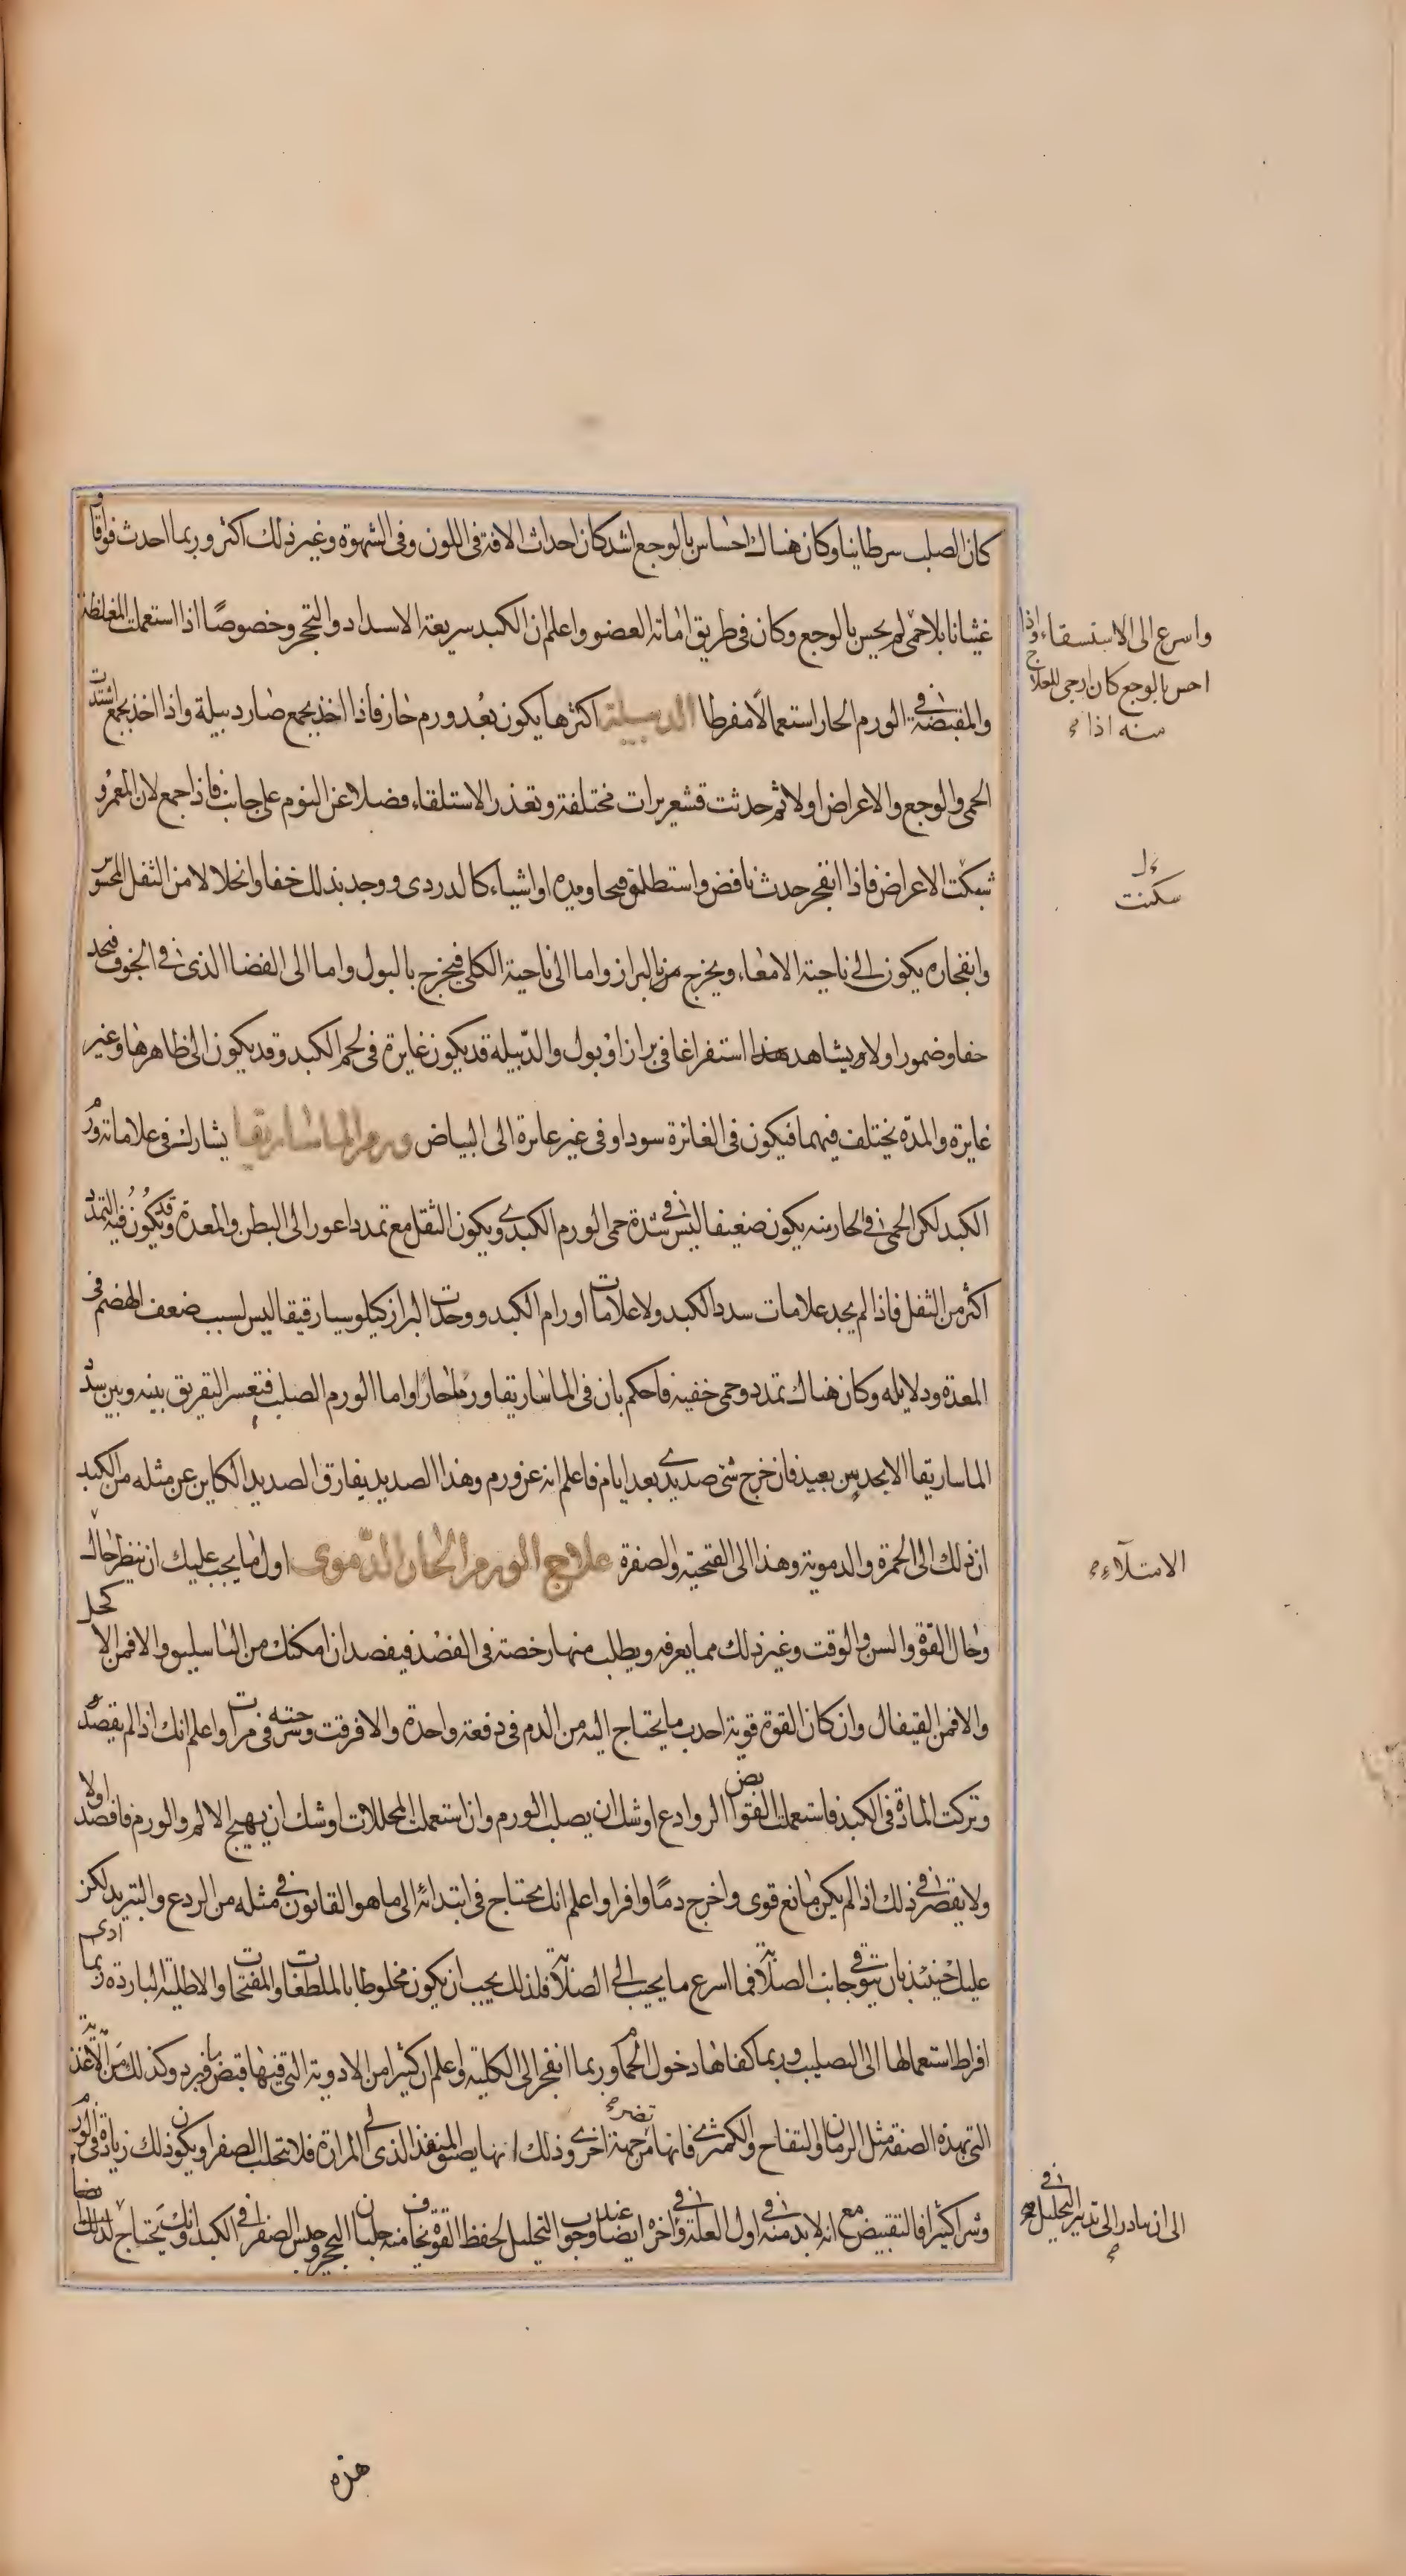 كان الصلب سرطانيا وكان هناك احساس بالوجع اشد كان احداث الافة فى اللون وفى الشهوة وغير ذلك اكثر وربما احدث فواقا و
غثيانا بلا حمى لم يحس بالوجع وكان فى طريق اماتة العضو واعلم ان الكبد سريعة الاسداد والتحجر وخصوصًا اذا استعملت المغلظة
واسرع الى الاستسقاء واذا
احس بالوجع كان ارجى للعلاج
منه اذا
والمقبضة فى الورم الحار استعمالًا مفرطا الدبيلة اكثرها يكون بعد ورم حار فاذا اخذ يجمع صار دبيلة واذا اخذ يجمع اشتدت
الحمى والوجع والاعراض اولا ثم حدثت قشعريرات مختلفة وتعذر الاستلقاء فضلا عن النوم على جانب فاذا جمع لان المغمز و
سكنت الاعراض فاذا انفجر حدث نافض واستطلق قيحا ومدة او اشياء كالدردى ووجد بذلك خفا وانحلالا من الثقل المحسوس
سكنت
وانفجاره يكون الى ناحية الامعاء ويخرج من البراز واما الى ناحية الكلى فيخرج بالبول واما الى الفضا الذى فى الجوف فتجد
خفا وضمورا ولا ويشاهد هذا استفراغا فى براز او بول والدبيلة قد يكون غايرة فى لحم الكبد وقد يكون الى ظاهرها وغير
غايرة والمدة يختلف فيهما فيكون فى الغائرة سودا وفى غير غايرة الى البياض ورم الماساريقا يشارك فى علاماته ورم
الكبد لكن الحمى فى الحار منه يكون ضعيفا ليس فى شدة حمى الورم الكبدى ويكون الثقل مع تمدد اغور الى البطن والمعدة وقد يكون فيه التمدد
اكثر من الثقل فاذا لم يجد علامات سدد الكبد ولا علامات اورام الكبد ووجدت البراز كيلوسيا رقيقا ليس لسبب ضعف الهضم فى
المعدة ودلايله وكان هناك تمدد وحمى خفية فاحكم بان فى الماساريقا ورما حارا واما الورم الصلب فتعسر التفريق بينه وبين سدد
الماساريقا الا بحدس بعيد فان خرج شئ صديدى بعد ايام فاعلم انه عن ورم وهذا الصديد يفارق الصديد الكاين عن مثله من الكبد
ان ذلك الى الحمرة والدموية وهذا الى القيحية والصفرة علاج الورم الحار الدّموى اول ما يجب عليك ان ينظر حال
الامتلآء
وحال القوة والسن والوقت وغير ذلك مما يعرفه ويطلب منها رخصة فى الفصد فيفصد ان امكنك من الباسليق والا فمن الاكحل
والا فمن القيفال وان كان القوة قوية اخذت ما يحتاج اليه من الدم فى دفعة واحدة والا فرقت وسرحته فى مرات واعلم انك اذا لم يفصد
وتركت المادة فى الكبد فاستعملت القوابض الروادع اوشك ان يصلب الورم وان استعملت المحللات اوشك ان يهيج الالم والورم فافصد اولا
ولا يقصر فى ذلك اذ لم يكن مانع قوى واخرج دمًا وافرا واعلم انك يحتاج فى ابتدائه الى ما هو القانون فى مثله من الردع والتبريد لكن
عليك حينئذ بان تتوقى جانب الصلابة فما اسرع ما يجيب الى الصلابة فلذلك يجب ان يكون مخلوطا بالملطفات والمفتحات والاطلية الباردة ربما ادى
افراط استعمالها الى التصليب وربما كفاها دخول الحمام وربما انفجر الى الكلية واعلم ان كثيرا من الادوية التى فيها قبض ما فيرد وكذلك من الاغذية
التى بهذه الصفة مثل الرمان والتفاح والكمثرى فانها تضر من جهة اخرى وذلك انها يضيق المنفذ الذى الى المرارة فلا يتحلب الصفرا ويكون ذلك زيادة فى الورم
وشرا كثيرا فالتقبيض مع انه لا بد منه فى اول العلة وفى اخره ايضا عند وجوب التحليل لحفظ القوة يخاف منه جلبان التحجر وحبس الصفرا فى الكبد وانك يحتاج لذلك ايضا
الى ان تبادر الى تدبير التحليل
هذه